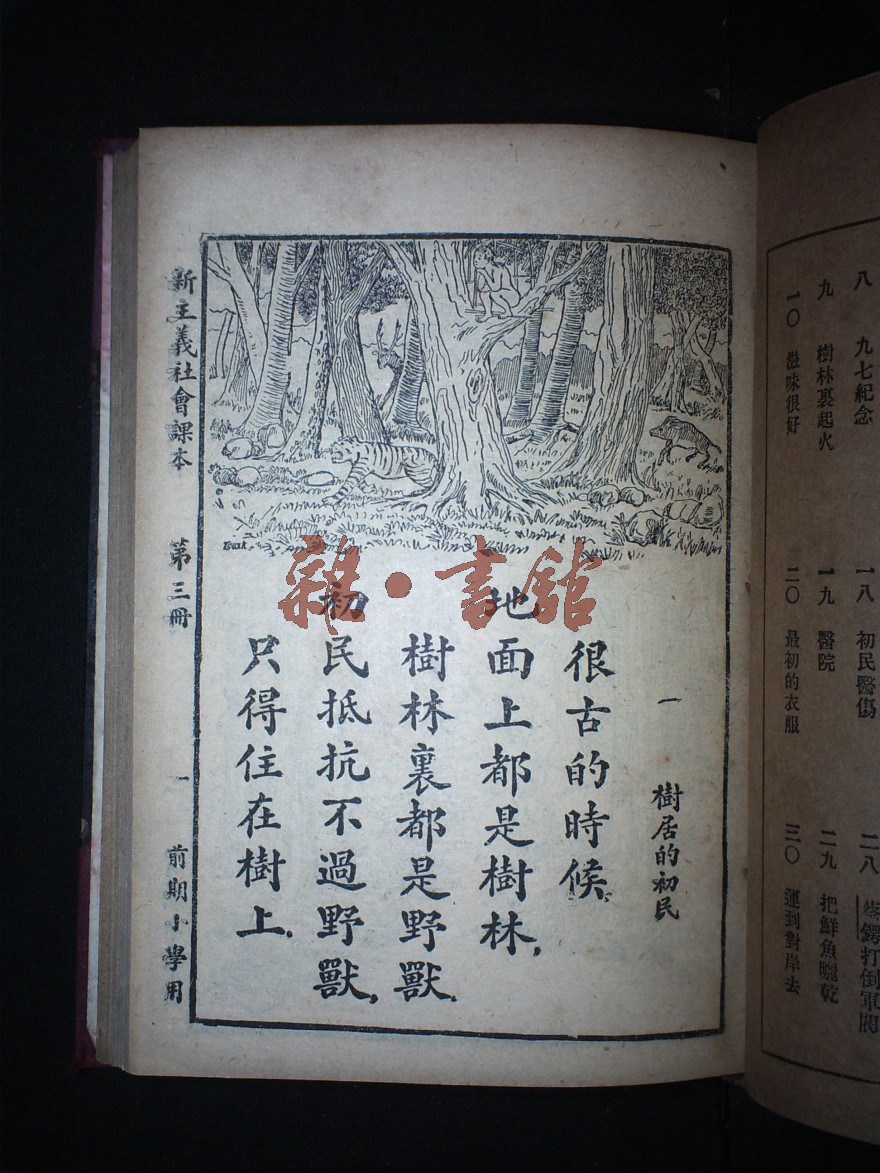 八　九七紀念
一八　初民醫傷
二八　蔡鍔打倒軍閥
九　樹林裏起火
一九　醫院
二九　把鮮魚曬乾
一〇　滋味很好
二〇　最初的衣服
三〇　運到對岸去
一　樹居的初民
很古的時候，
地面上都是樹林，
樹林裏都是野獸．
初民抵抗不過野獸，
只得住在樹上．
新主義社會課本　第三冊　一　前期小學用
雜·書館